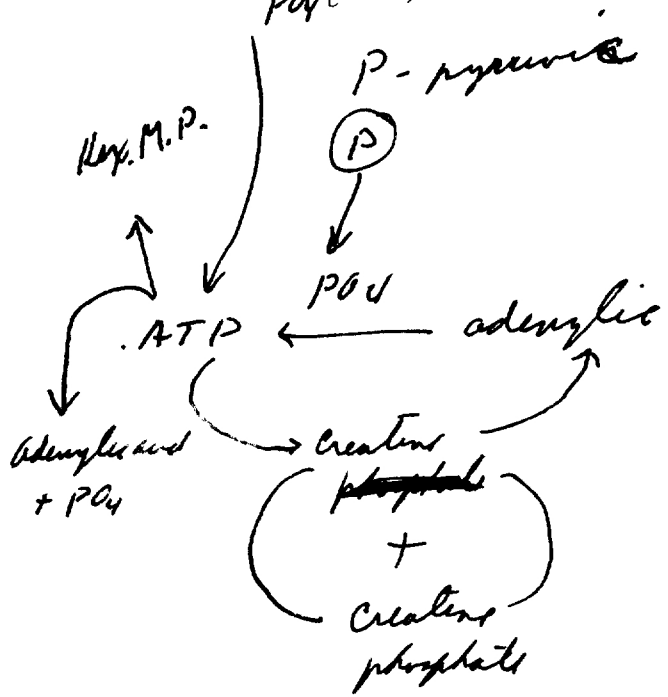 P - pyruvic
Hex. M. P.
P
PO4
ATP
adenylic
adenylic acid
+ PO4
Creatine
+
Creatine
phosphate